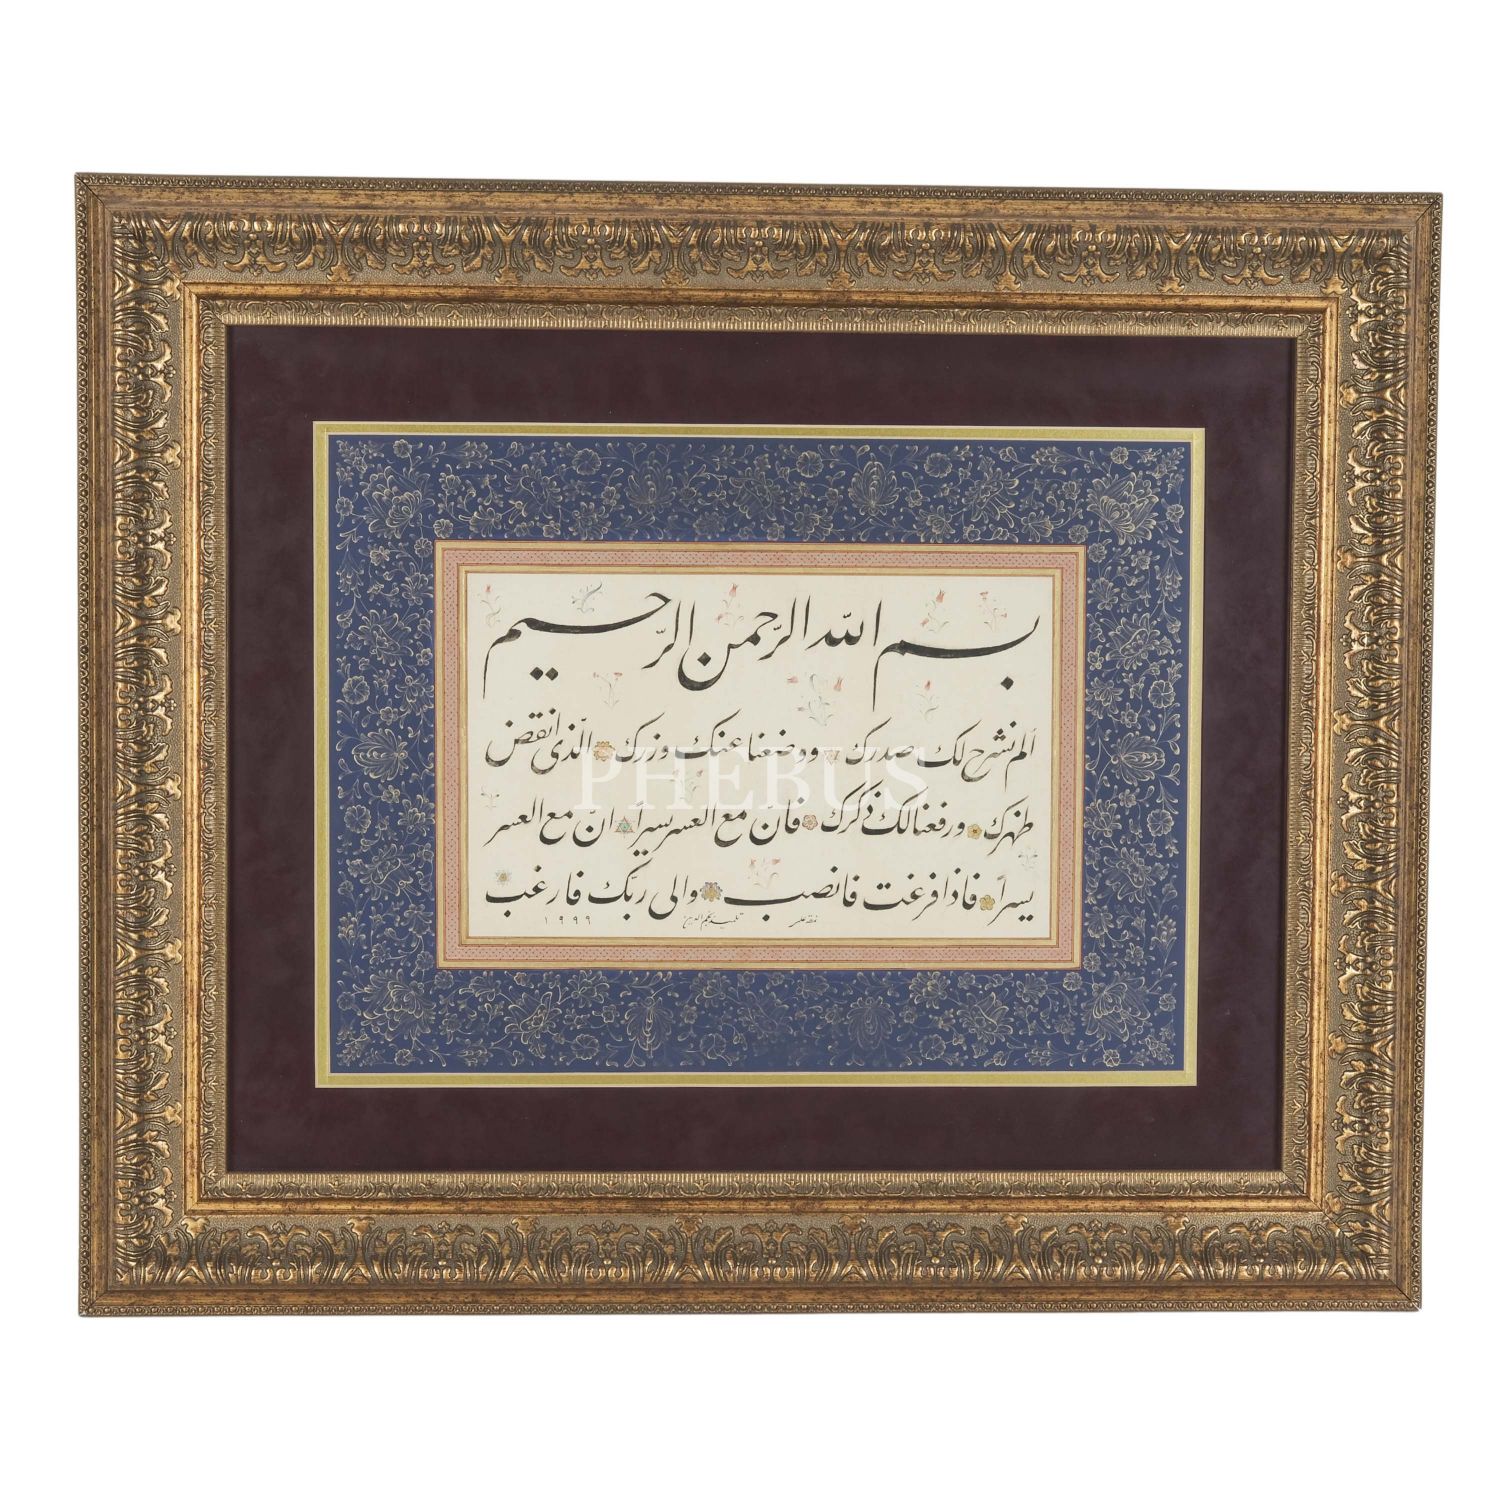 بسم الله الرحمن الرّحيم
الم نشرح لك صدرك ووضعنا عنك وزرك الّذى انقض
ظهرك ورفعنا لك ذكرك فان مع العسر يسراً انّ مع العسر
يسراً فاذا فرغت فانصب والى ربّك فارغب
تلميذ نجم الدين ١٩٩٩
PHEBUS